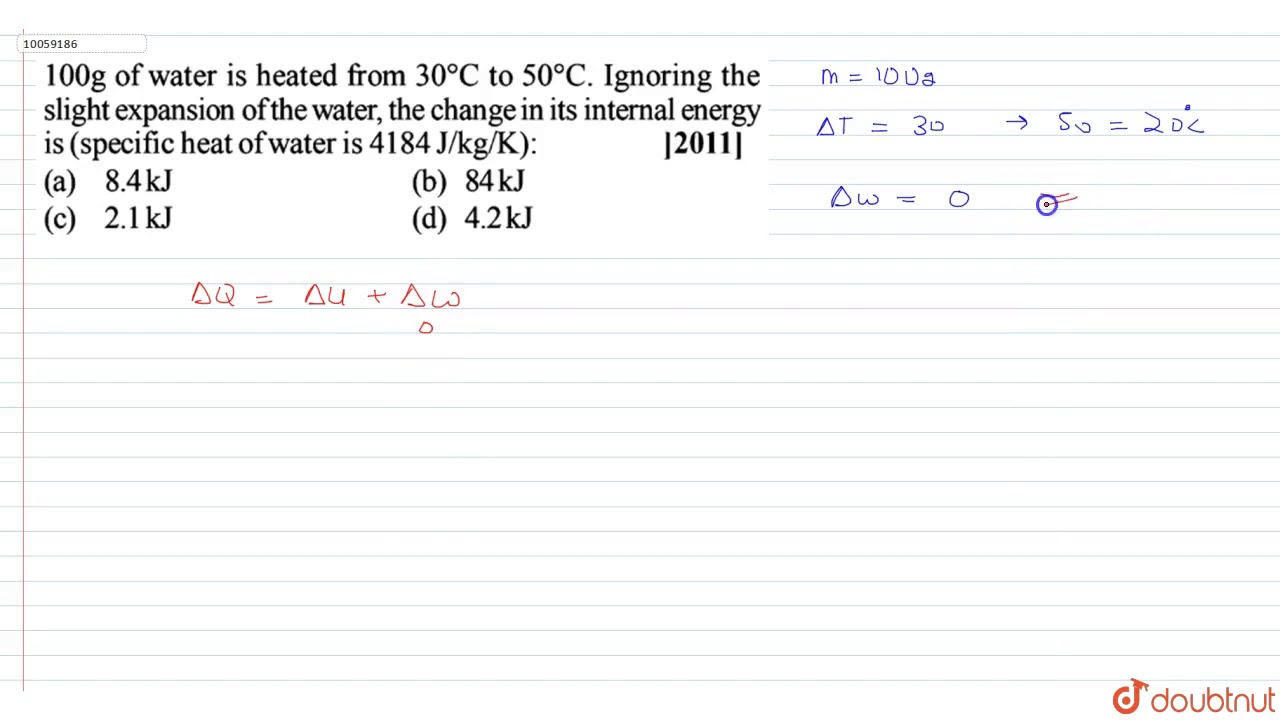 10059186
100g of water is heated from 30°C to 50°C. Ignoring the
slight expansion of the water, the change in its internal energy
is (specific heat of water is 4184 J/kg/K): ]2011]
(a) 8.4 kJ (b) 84 kJ
(c) 2.1 kJ (d) 4.2 kJ
m = 100g
ΔT = 30 → 50 = 20°C
Δw = 0
ΔQ = ΔU + Δw
0
doubtnut